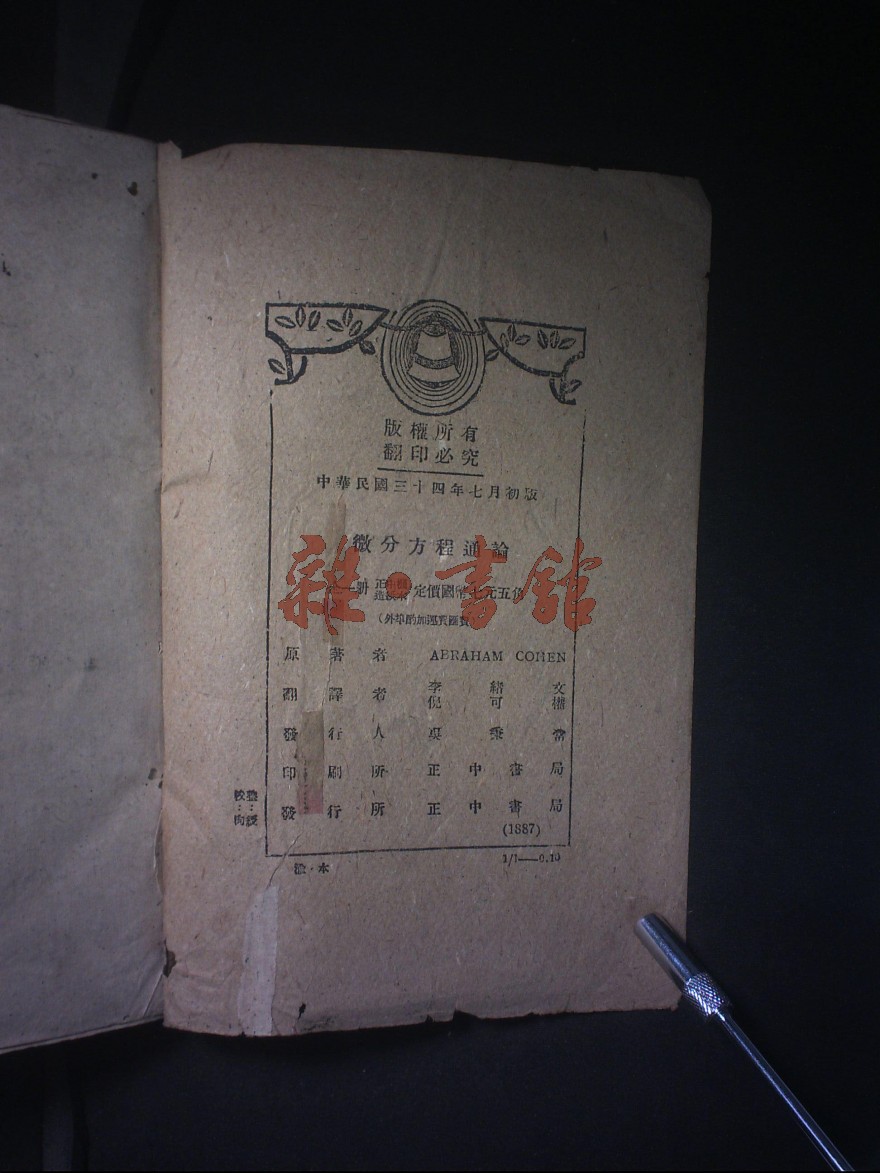 版權所有
翻印必究
中華民國三十四年七月初版
微分方程通論
雜·書館
一冊 定價國幣七元五角
(外埠酌加運費匯費)
原著者 ABRAHAM COHEN
翻譯者 李緒文 倪可權
發行人 吳秉常
印刷所 正中書局
發行所 正中書局
(1887)
校:向
渝·本
1/1—0.10